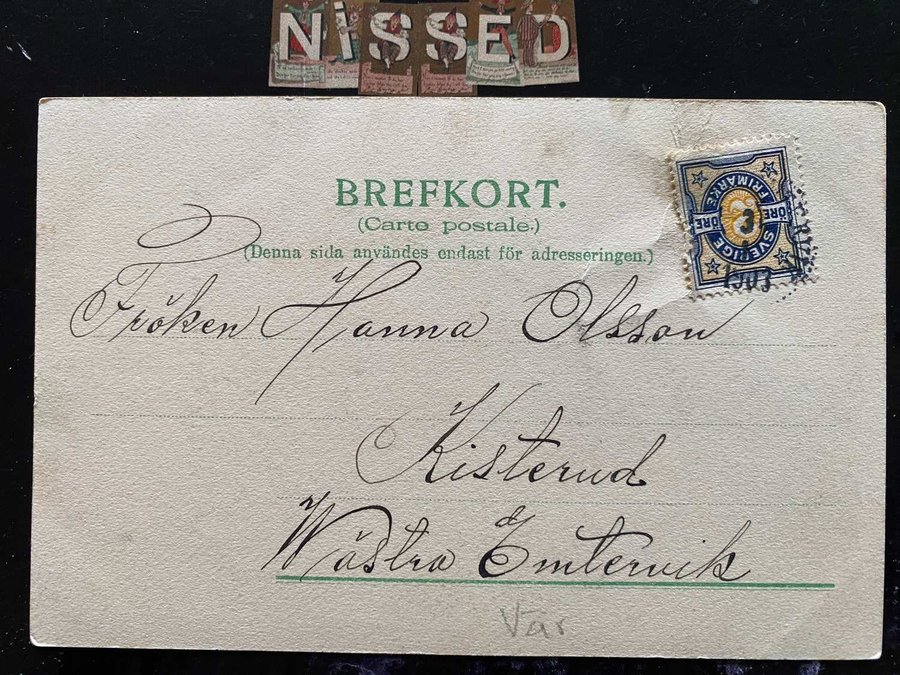 NISSED
BREFKORT.
(Carte postale.)
(Denna sida användes endast för adresseringen.)
SVERIGE
FRIMÄRKE
ÖRE
ÖRE
3
Fröken Hanna Olsson
Kisterud
Wästra Emtervik
Vär